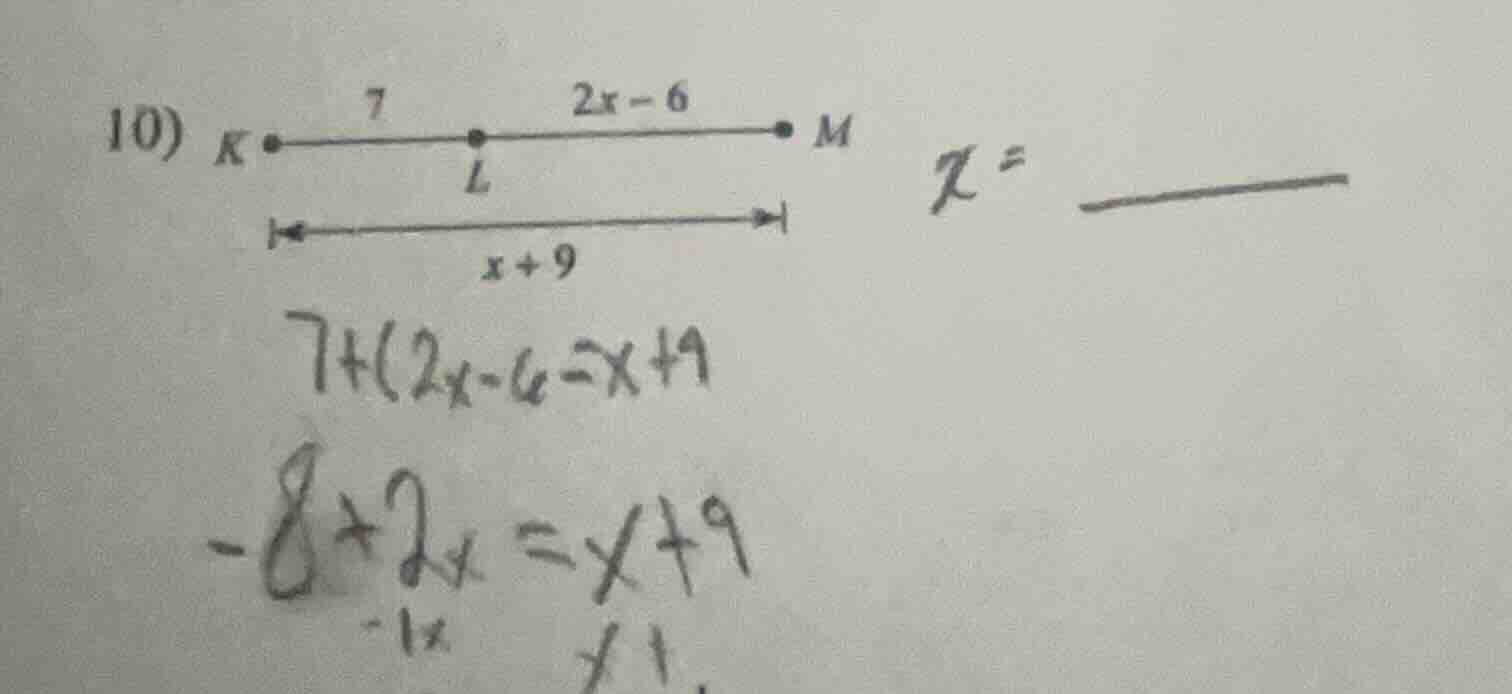 10) K 7 L 2x – 6 M
x + 9
x = ____
7+(2x-6=x+9
-8+2x=x+9
-1x